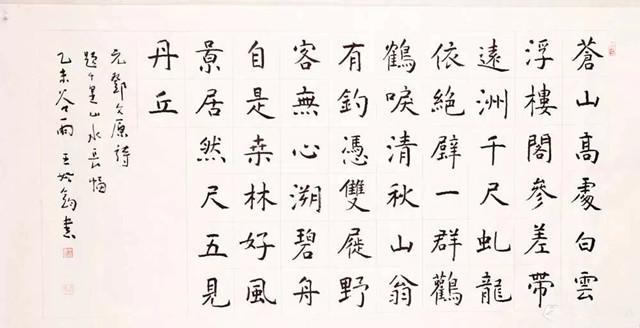 蒼山高處白雲
浮樓閣參差帶
遠洲千尺虬龍
依絕壁一群鸛
鶴唳清秋山翁
有釣憑雙屐野
客無心溯碧舟
自是桒林好風
景居然尺五見
丹丘
元鄧文原詩
題千里山水長幅
乙未谷雨王書